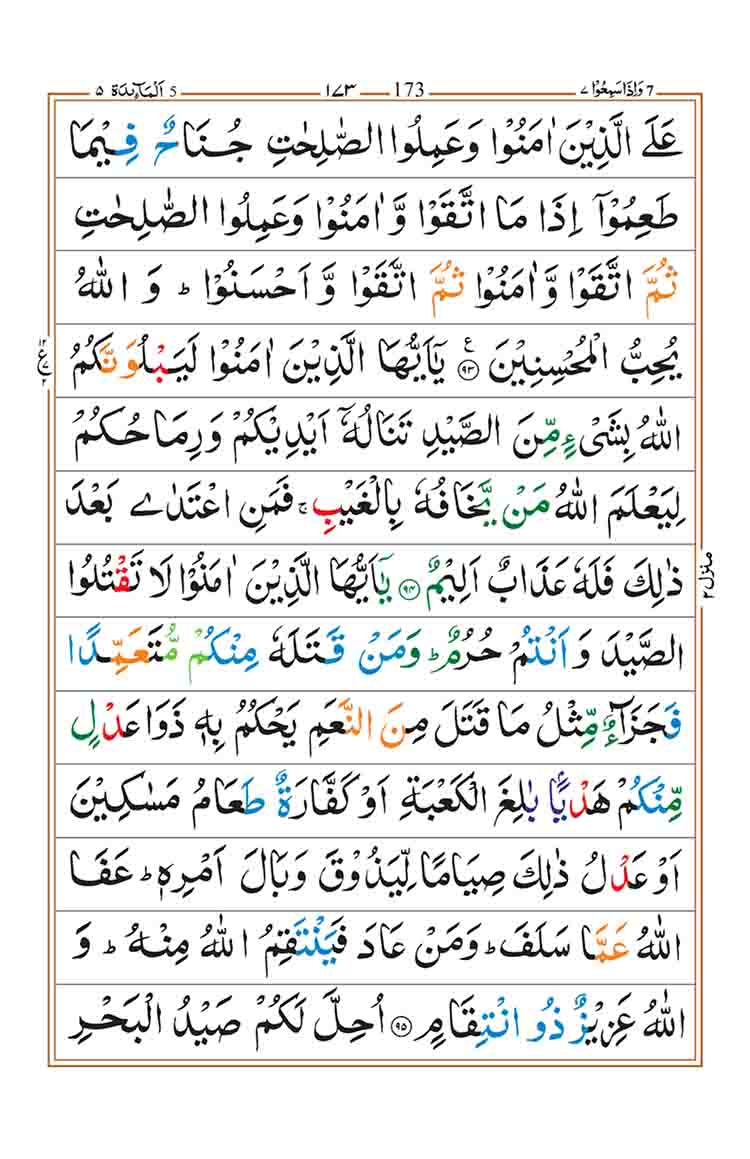 7 وَاِذَاسَمِعُوْا ٧ 173 ١٧٣ 5 اَلْمَآئِدَة ٥
عَلَے الَّذِيْنَ اٰمَنُوْا وَعَمِلُوا الصّٰلِحٰتِ جُنَاحٌ فِيْمَا
طَعِمُوْٓا اِذَا مَا اتَّقَوْا وَّاٰمَنُوْا وَعَمِلُوا الصّٰلِحٰتِ
ثُمَّ اتَّقَوْا وَّاٰمَنُوْا ثُمَّ اتَّقَوْا وَّاَحْسَنُوْا ؕ وَ اللّٰهُ
يُحِبُّ الْمُحْسِنِيْنَ ۧ ٩٣ يٰۤاَيُّهَا الَّذِيْنَ اٰمَنُوْا لَيَبْلُوَنَّكُمُ
اللّٰهُ بِشَیْءٍ مِّنَ الصَّيْدِ تَنَالُهٗۤ اَيْدِيْكُمْ وَرِمَاحُكُمْ
لِيَعْلَمَ اللّٰهُ مَنْ يَّخَافُهٗ بِالْغَيْبِ ۚ فَمَنِ اعْتَدٰے بَعْدَ
ذٰلِكَ فَلَهٗ عَذَابٌ اَلِيْمٌ ٩٤ يٰۤاَيُّهَا الَّذِيْنَ اٰمَنُوْا لَا تَقْتُلُوا
الصَّيْدَ وَ اَنْتُمْ حُرُمٌ ؕ وَمَنْ قَتَلَهٗ مِنْكُمْ مُّتَعَمِّدًا
فَجَزَآءٌ مِّثْلُ مَا قَتَلَ مِنَ النَّعَمِ يَحْكُمُ بِهٖ ذَوَا عَدْلٍ
مِّنْكُمْ هَدْيًۢا بٰلِغَ الْكَعْبَةِ اَوْ كَفَّارَةٌ طَعَامُ مَسٰكِيْنَ
اَوْ عَدْلُ ذٰلِكَ صِيَامًا لِّيَذُوْقَ وَبَالَ اَمْرِهٖ ؕ عَفَا
اللّٰهُ عَمَّا سَلَفَ ؕ وَمَنْ عَادَ فَيَنْتَقِمُ اللّٰهُ مِنْهُ ؕ وَ
اللّٰهُ عَزِيْزٌ ذُو انْتِقَامٍ ٩٥ اُحِلَّ لَكُمْ صَيْدُ الْبَحْرِ
ع
منزل ٢